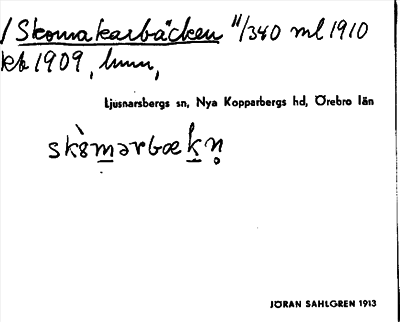 / Skomakarbäcken 11/340 ml 1910
kb 1909,
Ljusnarsbergs sn, Nya Kopparbergs hd, Örebro län
skò̀marbækn̥
JÖRAN SAHLGREN 1913